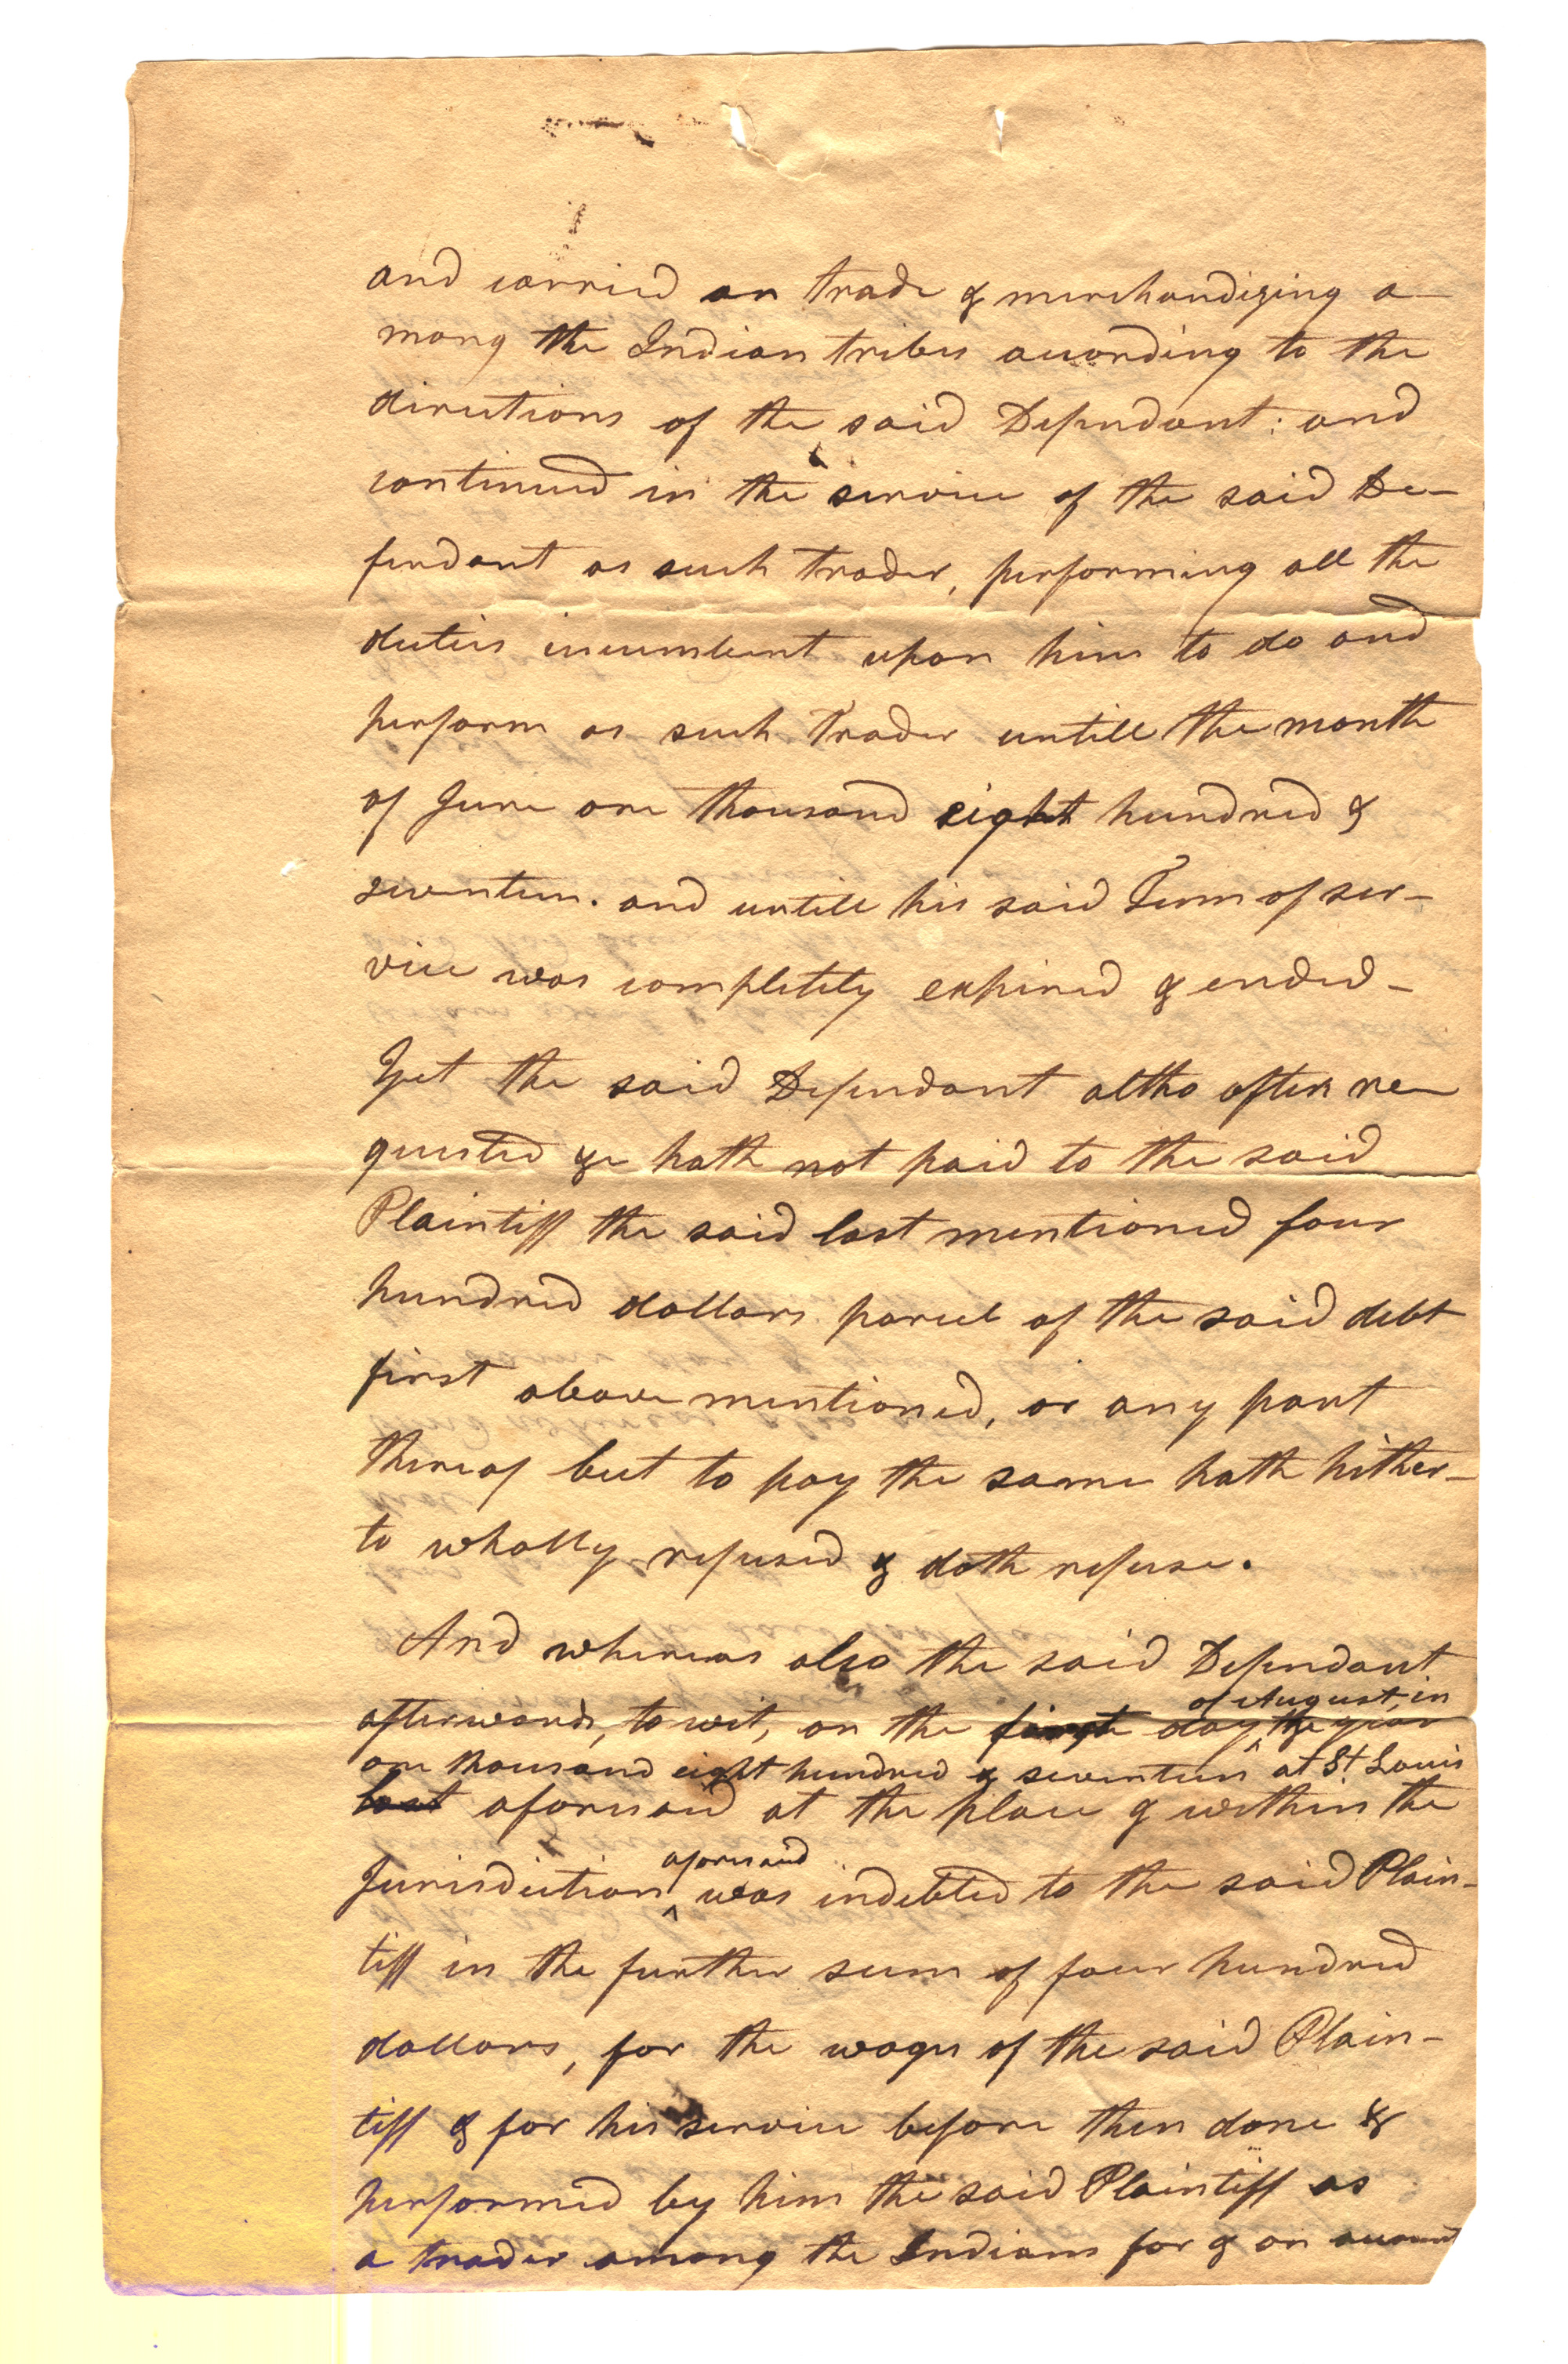 and carried on trade & merchandizing a-
mong the Indian tribes according to the
directions of the said Defendant: and
continued in the service of the said De-
fendant as such trader, performing all the
duties incumbent upon him to do and
perform as such Trader untill the month
of June one thousand eight hundred &
seventeen. and untill his said Term of ser-
vice was completely expired & ended-
Yet the said Defendant altho often re-
quested &c hath not paid to the said
Plaintiff the said last mentioned four
hundred dollars parcel of the said debt
first above mentioned, or any part
thereof but to pay the same hath hither-
to wholly refused & doth refuse.
And whereas also the said Defendant
of August, in
afterwards, to wit, on the first day the year
one thousand eight hundred & seventeen at St Louis
last aforesaid at the place & within the
aforesaid
Jurisdiction was indebted to the said Plain-
tiff in the further sum of four hundred
dollars, for the wages of the said Plain-
tiff & for his service before then done &
performed by him the said Plaintiff as
a trader among the Indians for & on account